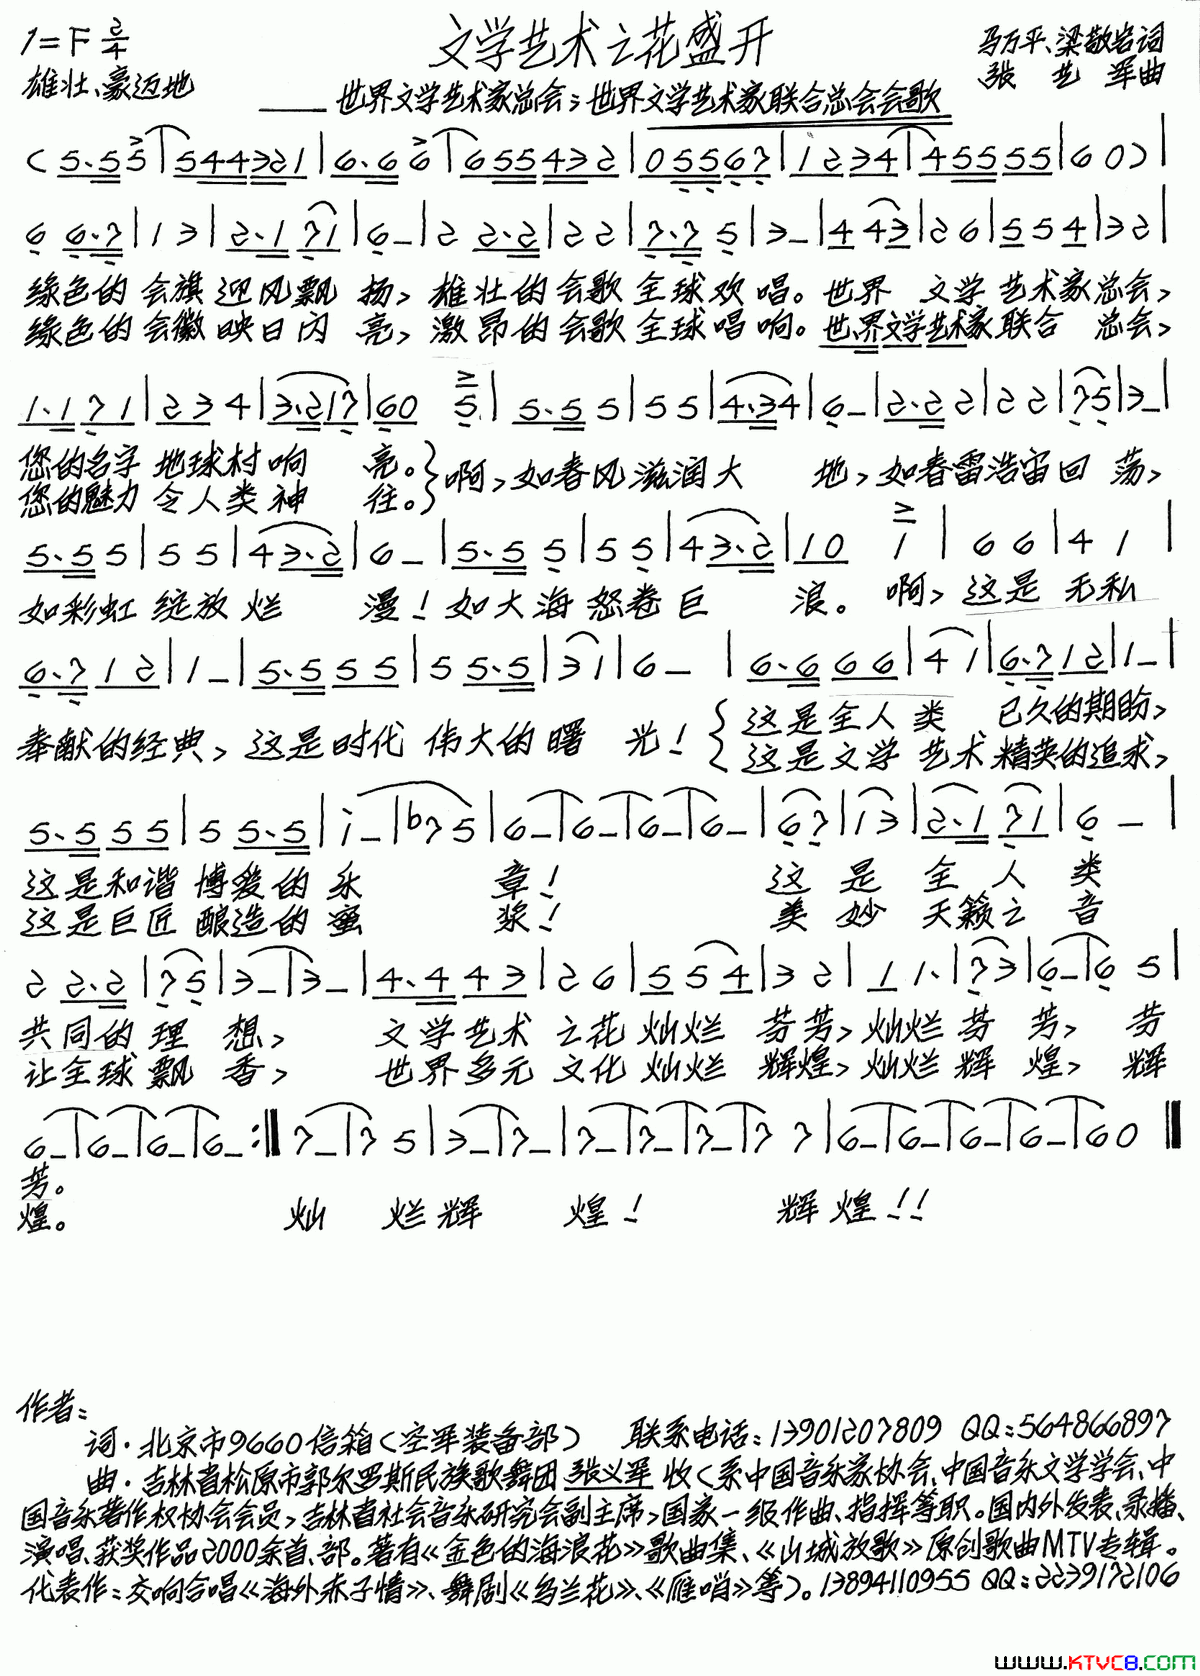 文学艺术之花盛开
1=F 2/4
马万平、梁敬岩词
雄壮、豪迈地
张艺军曲
——世界文学艺术家总会;世界文学艺术家联合总会会歌
(5.5 5|5 4 4 3 2 1|6.6 6|6 5 5 4 3 2|0 5 5 6 7|1 2 3 4|4 5 5 5 5|6 0)|
6 6.7|1 3|2.1 7 1|6 -|2 2.2|2 2|7.7 5|3 -|4 4 3|2 6|5 5 4|3 2|
绿色的会旗迎风飘扬,雄壮的会歌全球欢唱。世界文学艺术家总会,
绿色的会徽映日内亮,激昂的会歌全球唱响。世界文学艺术家联合总会,
1.1 7 1|2 3 4|3.2 1 7|6 0 5|5.5 5|5 5|4.3 4|6 -|2.2 2|2 2|7 5|3 -|
您的名字地球村响亮。}啊,如春风滋润大地,如春雷浩宙回荡,
您的魅力令人类神往。
5.5 5|5 5|4 3.2|6 -|5.5 5|5 5|4 3.2|1 0 1|6 6|4 1|
如彩虹绽放烂漫!如大海怒卷巨浪。啊,这是无私
6.7 1 2|1 -|5.5 5 5|5 5.5|3 1|6 -|6.6 6 6|4 1|6.7 1 2|1 -|
奉献的经典,这是时代伟大的曙光!{这是全人类已久的期盼,
这是文学艺术精英的追求,
5.5 5 5|5 5.5|i -|b7 5|6 -|6 -|6 -|6 -|6 7|1 3|2.1 7 1|6 -|
这是和谐博爱的乐章!这是全人类
这是巨匠酿造的蜜浆!美妙天籁之音
2 2.2|7 5|3 -|3 -|4.4 4 3|2 6|5 5 4|3 2|1 1.|7 3|6 -|6 5|
共同的理想,文学艺术之花灿烂芬芳,灿烂芬芳,芬
让全球飘香,世界多元文化灿烂辉煌,灿烂辉煌,辉
6 -|6 -|6 -|6 -:‖7 -|7 5|3 -|7 -|7 -|7 -|7 -|7 7|6 -|6 -|6 -|6 -|6 0‖
芳。
煌。灿烂辉煌!辉煌!!
作者:
词·北京市9660信箱(空军装备部) 联系电话:13901207809 QQ:564866897
曲·吉林省松原市郭尔罗斯民族歌舞团 张义军 收(系中国音乐家协会、中国音乐文学学会、中
国音乐著作权协会会员,吉林省社会音乐研究会副主席,国家一级作曲、指挥等职。国内外发表、录播、
演唱、获奖作品2000余首、部。著有《金色的海浪花》歌曲集、《山城放歌》原创歌曲MTV专辑。
代表作:交响合唱《海外赤子情》、舞剧《乌兰花》、《雁哨》等)。13894110955 QQ:2239172106
www.KTVC8.com